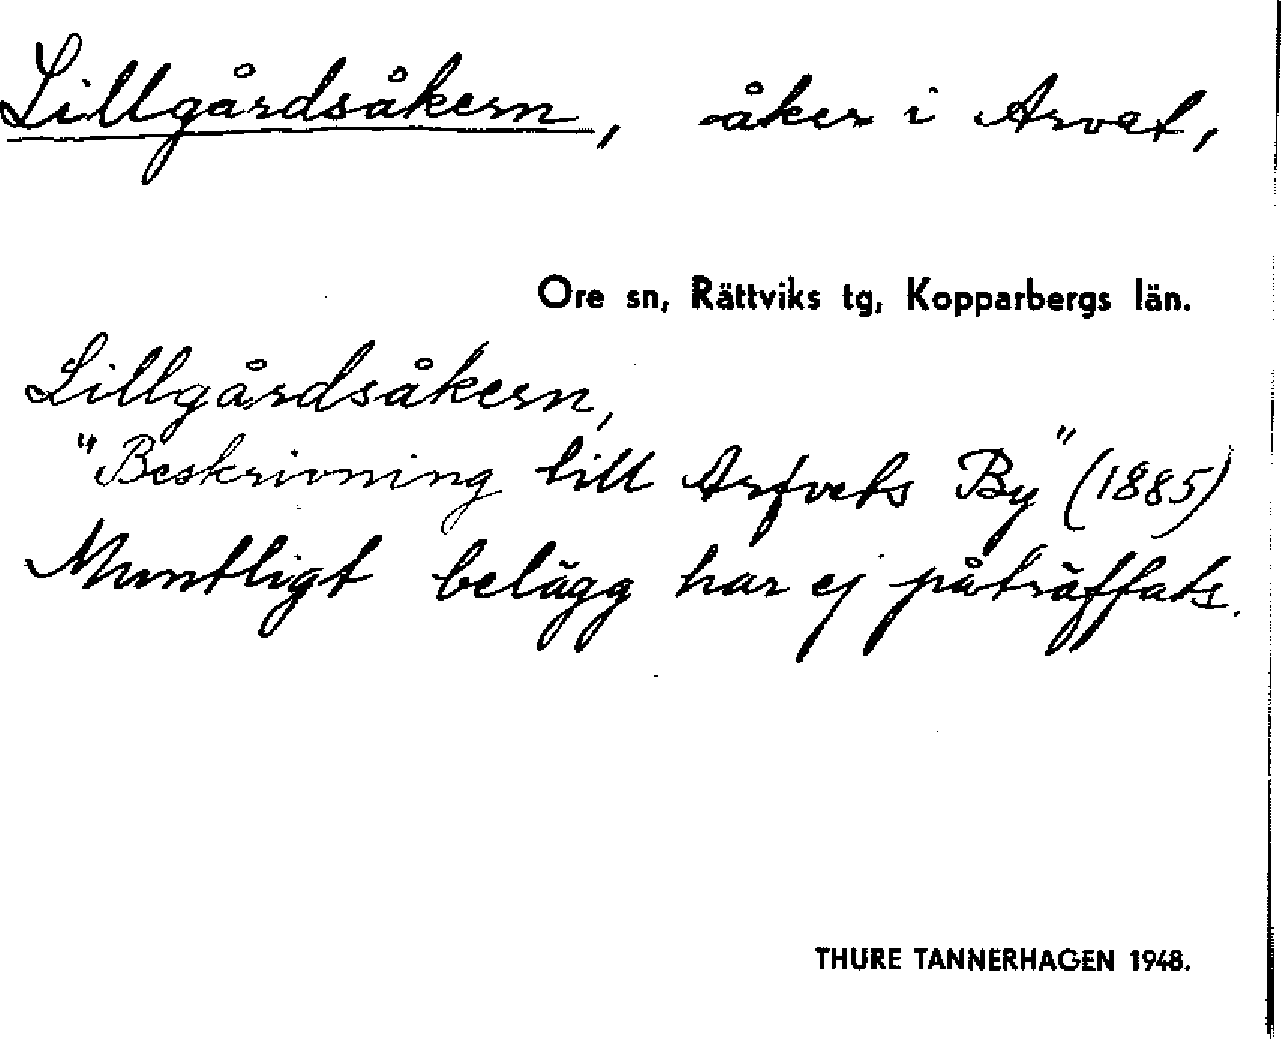 Lillgårdsåkern, åker i Arvet,
Ore sn, Rättviks tg, Kopparbergs län.
Lillgårdsåkern,
"Beskrivning till Arfvets By" (1885)
Muntligt belägg har ej påträffats.
THURE TANNERHAGEN 1948.